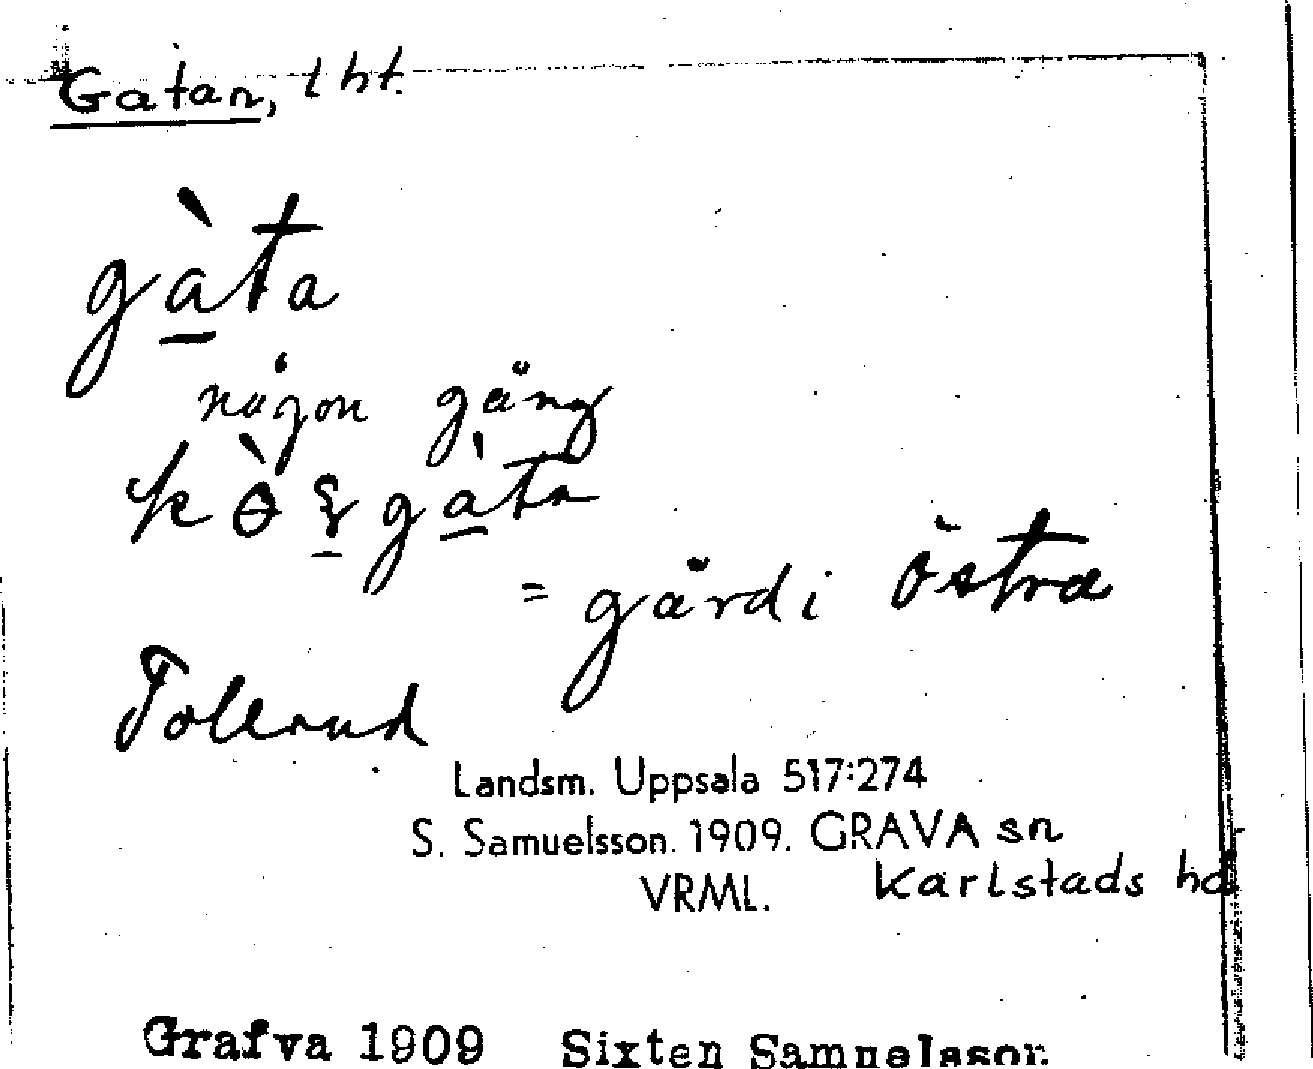 Gatan, lht.
gàta
någon gång
gàta
= gärd i östra
Tollerud
Landsm. Uppsala 517:274
S. Samuelsson. 1909. GRAVA sn
VRML. Karlstads hd
Grafva 1909 Sixten Samuelsson